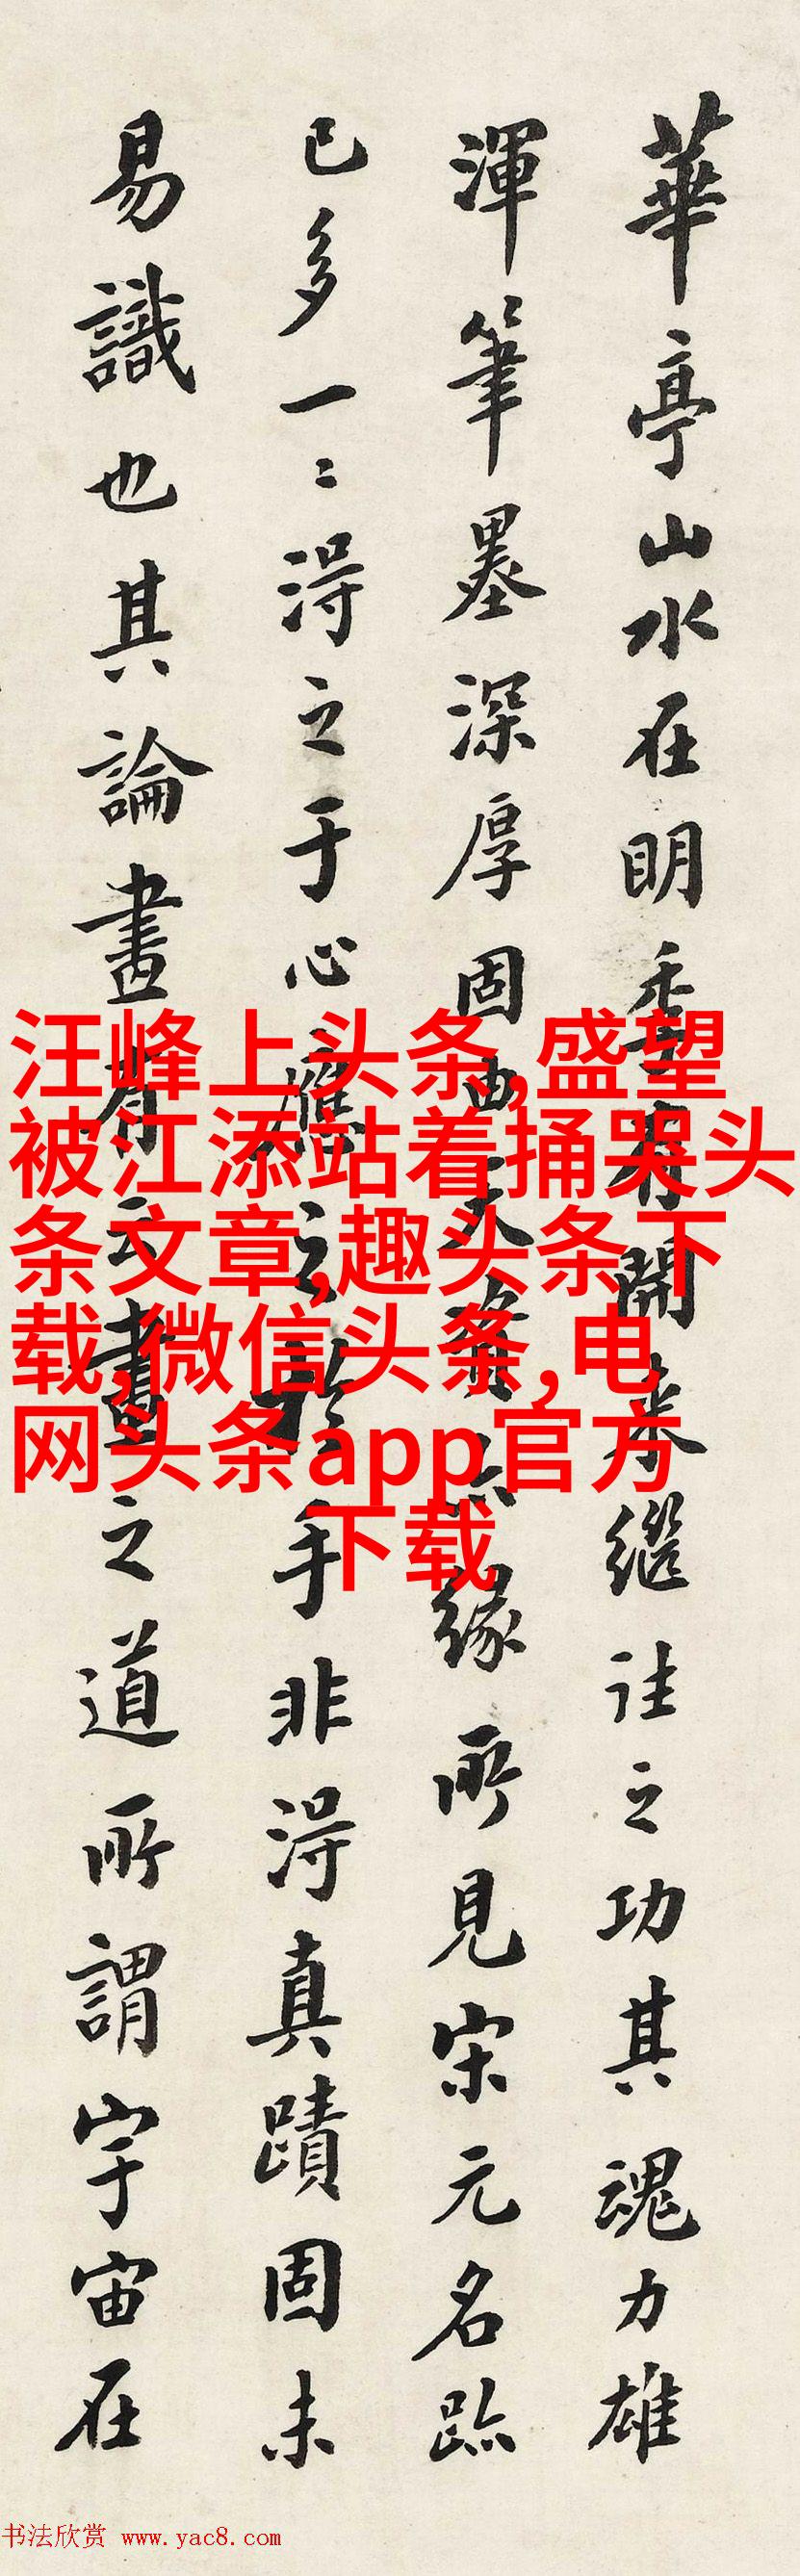 華亭山水在明季有開來繼往之功其魂力雄
渾筆墨深厚固由天資亦緣所見宋元名跡
已多一〻得之于心應之於手非得真蹟固未
易識也其論畫有云畫之道所謂宇宙在
汪峰上头条,盛望
被江添站着捅哭头
条文章,趣头条下
载,微信头条,电
网头条app官方
下载
书法欣赏 www.yac8.com